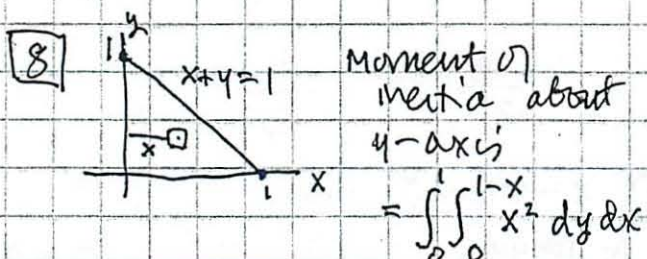 8
y
1
x+y=1
x
1
x
Moment of
inertia about
y-axis
= ∫₀¹ ∫₀^{1-x} x² dy dx